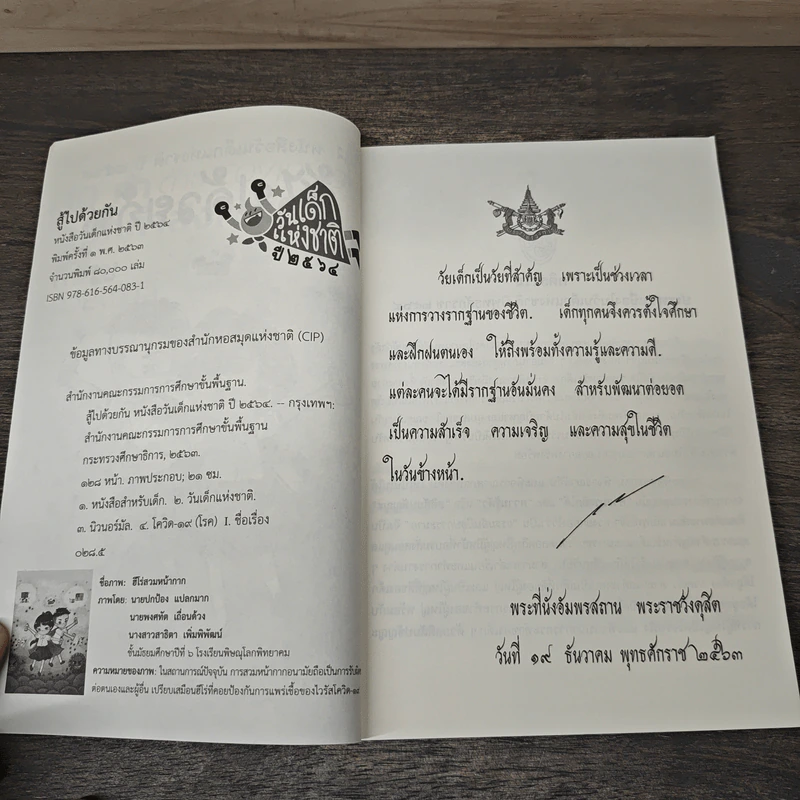 สู้ไปด้วยกัน
หนังสือวันเด็กแห่งชาติ ปี ๒๕๖๔
พิมพ์ครั้งที่ ๑ พ.ศ. ๒๕๖๓
จำนวนพิมพ์ ๘๐,๐๐๐ เล่ม
ISBN 978-616-564-083-1
วันเด็ก
แห่งชาติ
ปี ๒๕๖๔
ข้อมูลทางบรรณานุกรมของสำนักหอสมุดแห่งชาติ (CIP)
สำนักงานคณะกรรมการการศึกษาขั้นพื้นฐาน.
สู้ไปด้วยกัน หนังสือวันเด็กแห่งชาติ ปี ๒๕๖๔. -- กรุงเทพฯ:
สำนักงานคณะกรรมการการศึกษาขั้นพื้นฐาน
กระทรวงศึกษาธิการ, ๒๕๖๓.
๑๒๘ หน้า. ภาพประกอบ; ๒๑ ซม.
๑. หนังสือสำหรับเด็ก. ๒. วันเด็กแห่งชาติ.
๓. นิวนอร์มัล. ๔. โควิด-๑๙ (โรค) I. ชื่อเรื่อง
๐๒๘.๕
ชื่อภาพ: ฮีโร่สวมหน้ากาก
ภาพโดย: นายปกป้อง แปลกมาก
นายพงศทัต เถื่อนด้วง
นางสาวสาธิดา เพิ่มพิพัฒน์
ชั้นมัธยมศึกษาปีที่ ๖ โรงเรียนพิษณุโลกพิทยาคม
ความหมายของภาพ: ในสถานการณ์ปัจจุบัน การสวมหน้ากากอนามัยถือเป็นการรับผิด
ต่อตนเองและผู้อื่น เปรียบเสมือนฮีโร่ที่คอยป้องกันการแพร่เชื้อของไวรัสโควิด-๑๙
วัยเด็กเป็นวัยที่สำคัญ เพราะเป็นช่วงเวลา
แห่งการวางรากฐานของชีวิต. เด็กทุกคนจึงควรตั้งใจศึกษา
และฝึกฝนตนเอง ให้ถึงพร้อมทั้งความรู้และความดี.
แต่ละคนจะได้มีรากฐานอันมั่นคง สำหรับพัฒนาต่อยอด
เป็นความสำเร็จ ความเจริญ และความสุขในชีวิต
ในวันข้างหน้า.
พระที่นั่งอัมพรสถาน พระราชวังดุสิต
วันที่ ๑๙ ธันวาคม พุทธศักราช ๒๕๖๓